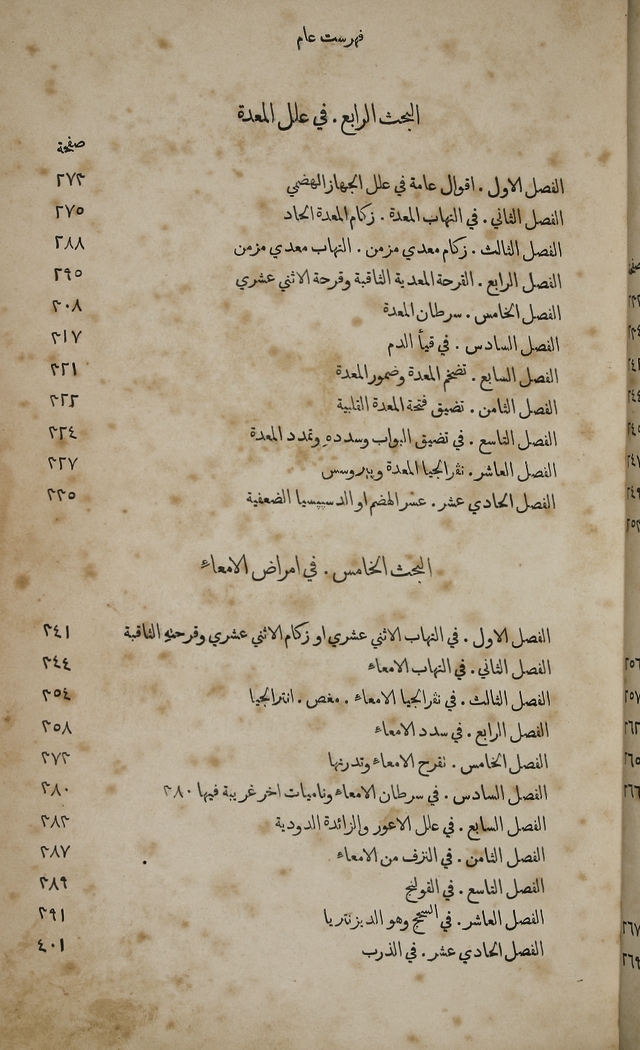 فهرست عام
البحث الرابع . في علل المعدة
صفحة
الفصل الاول . اقوال عامة في علل الجهاز الهضمي ٢٧٣
الفصل الثاني . في التهاب المعدة . زكام المعدة الحاد ٢٧٥
الفصل الثالث . زكام معدي مزمن . التهاب معدي مزمن ٢٨٨
الفصل الرابع . القرحة المعدية الثاقبة وقرحة الاثني عشري ٢٩٥
الفصل الخامس . سرطان المعدة ٣٠٨
الفصل السادس . في قيأ الدم ٣١٧
الفصل السابع . تضخم المعدة وضمور المعدة ٣٢١
الفصل الثامن . تضيق فتحة المعدة القلبية ٣٢٣
الفصل التاسع . في تضيق البواب وسدده وتمدد المعدة ٣٢٤
الفصل العاشر . نفرالجيا المعدة وپيروسس ٣٢٧
الفصل الحادي عشر . عسر الهضم او الدسپيسيا الضعفية ٣٣٥
البحث الخامس . في امراض الامعاء
الفصل الاول . في التهاب الاثني عشري او زكام الاثني عشري وقرحته الثاقبة ٣٤١
الفصل الثاني . في التهاب الامعاء ٣٤٤
الفصل الثالث . في نفرالجيا الامعاء . مغص . انترالجيا ٣٥٤
الفصل الرابع . في سدد الامعاء ٣٥٨
الفصل الخامس . تقرح الامعاء وتدرنها ٣٧٣
الفصل السادس . في سرطان الامعاء وناميات اخر غريبة فيها ٣٨٠ ٣٨٠
الفصل السابع . في علل الاعور والزائدة الدودية ٣٨٢
الفصل الثامن . في النزف من الامعاء ٣٨٧
الفصل التاسع . في القولنج ٣٨٩
الفصل العاشر . في السحج وهو الديزنتريا ٣٩١
الفصل الحادي عشر . في الذرب ٤٠١